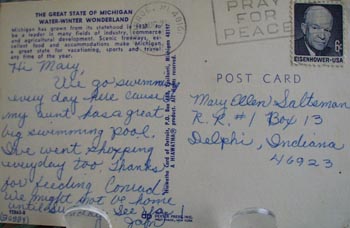 THE GREAT STATE OF MICHIGAN
WATER-WINTER WONDERLAND
Michigan has grown from its statehood in 1837 to
be a leader in many fields of industry, commerce
and agricultural development. Scenic freeways, ex-
cellent food and accommodations make Michigan
a great state for vacationing, sports and travel
any time of the year.
Hi Mary,
We go swimming
every day here cause
my aunt has a great
big swimming pool.
I've went shopping
everyday too. Thanks
for feeding Conrad.
We might not be home
until Sunday. See Ya
PRAY
FOR
PEACE
6c
EISENHOWER·USA
POST CARD
Mary Ellen Saltsman
R.R. #1 Box 13
Delphi, Indiana
46923